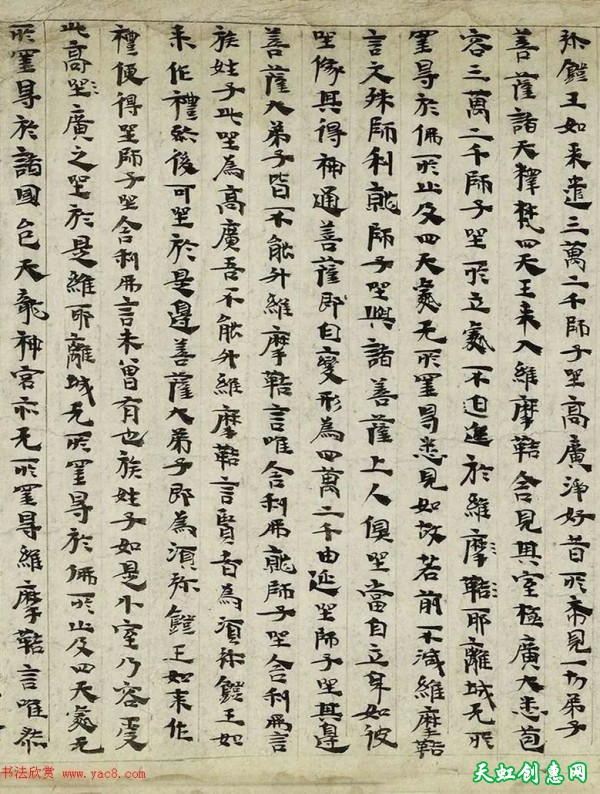 弥鐙王如来遣三萬二千師子坐高廣淨好昔所希見一切弟子
菩薩諸天釋梵四天王来入維摩詰舍見其室極廣大悉苞
容三萬二千師子坐所立處不迫迮於維摩詰耶離城无所
罣㝵於佛所止及四天處无所罣㝵悉見如故若前不减維摩詰
言文殊師利就師子坐與諸菩薩上人俱坐當自立身如彼
坐像其得神通菩薩即自變形為四萬二千由延坐師子坐其邊
菩薩大弟子皆不能升維摩詰言唯舍利弗就師子坐舍利弗言
族姓子此坐為高廣吾不能升維摩詰言賢者為須弥鐙王如
来作禮然後可坐於是邊菩薩大弟子即為須弥鐙王如来作
禮便得坐師子坐舍利弗言未曾有也族姓子如是小室乃容受
此高坐廣之坐於是維耶離城无所罣㝵於佛所止及四天處无
所罣㝵於諸國邑天龍神宮亦无所罣㝵維摩詰言唯然
书法欣赏 www.yac8.com
天虹创惠网